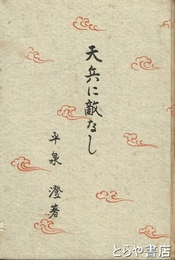 天兵に敵なし
平泉澄著
とらや書店